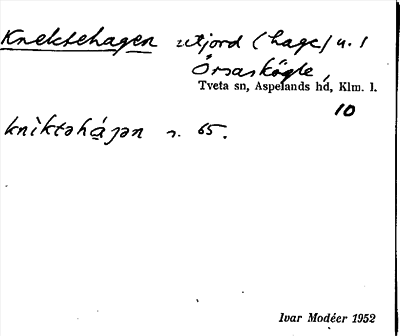 Knektehagen utjord (hage) u. 1
Örsaskögle,
Tveta sn, Aspelands hd, Klm. l.
10
knìktəhágən s. 65.
Ivar Modéer 1952